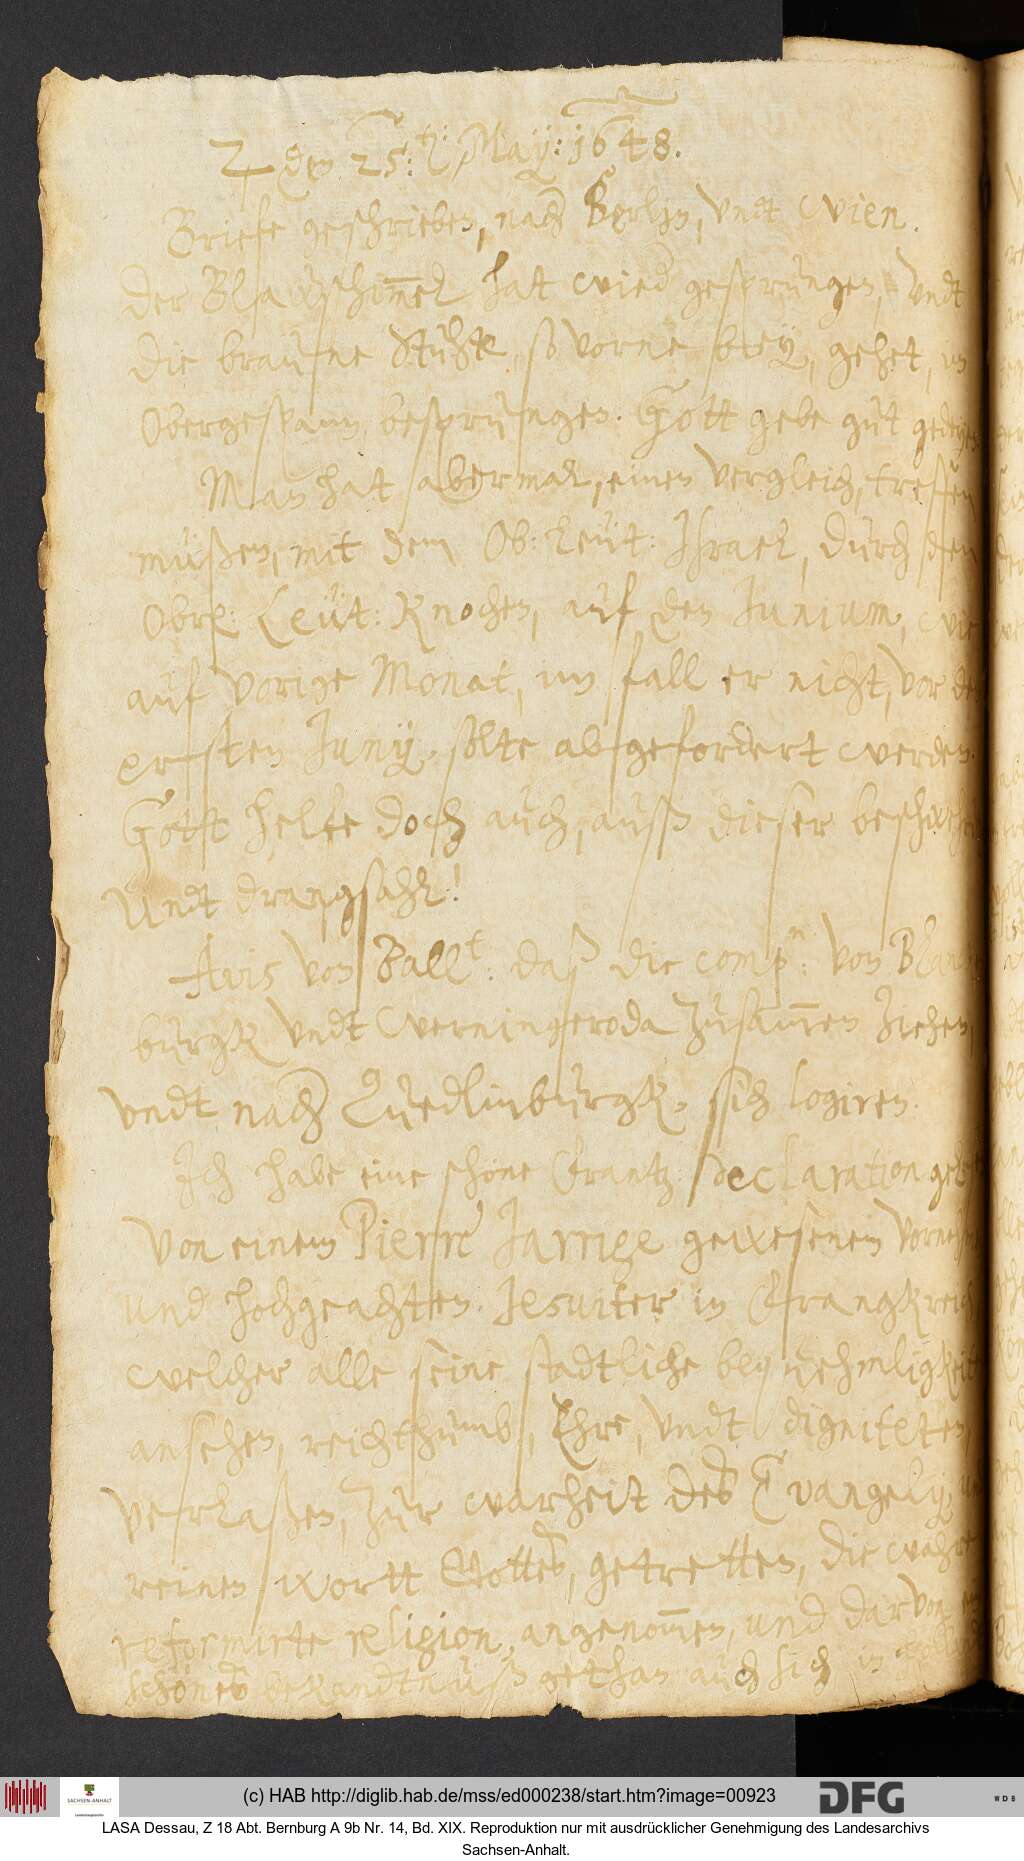 ♃ den 25.ten: May: 1648.
Briefe geschrieben, nach Berlin, vndt Wien.
Der Blawschim̅el hat wied gesprungen, vndt
die braune Stuhte so vorne bey, gehet, im
Obergespann besprungen. Gott gebe gut gedeyen
Man hat abermal, einen vergleich, treffen
müßen, mit dem Ob: Leüt: Israel, durch den
Obr: Leüt: Knochen, auf den Junium, wie
auf vorige Monat, im fall er nicht, vor dem
ersten Junij, solte abgefordert werden.
Gott helfe doch auch, auß dieser beschwehr
vndt drangsahl!
Avis von Ballt: daß die comp.n: von Blancken
burgk vndt Werningeroda zusam̅en ziehen,
vndt nach Quedlinburgk, sich logiren.
Ich habe eine schöne Frantz. declaration
von einem Pierre Jarrige gewesenem vornehmen
und hochgeachten Jesuiter in Franckreich
welcher alle seine stadtliche
ansehen, reichthumb, Ehre, vndt digniteten,
verlaßen, zur warheit des Evangelij,
reinen wortt Gottes, getretten, die wahre
reformirte religion, angenom̅en, und darvon ein
schönes bekandtnuß gethan auch sich in
(c) HAB http://diglib.hab.de/mss/ed000238/start.htm?image=00923
SACHSEN-ANHALT
DFG
WDB
LASA Dessau, Z 18 Abt. Bernburg A 9b Nr. 14, Bd. XIX. Reproduktion nur mit ausdrücklicher Genehmigung des Landesarchivs
Sachsen-Anhalt.